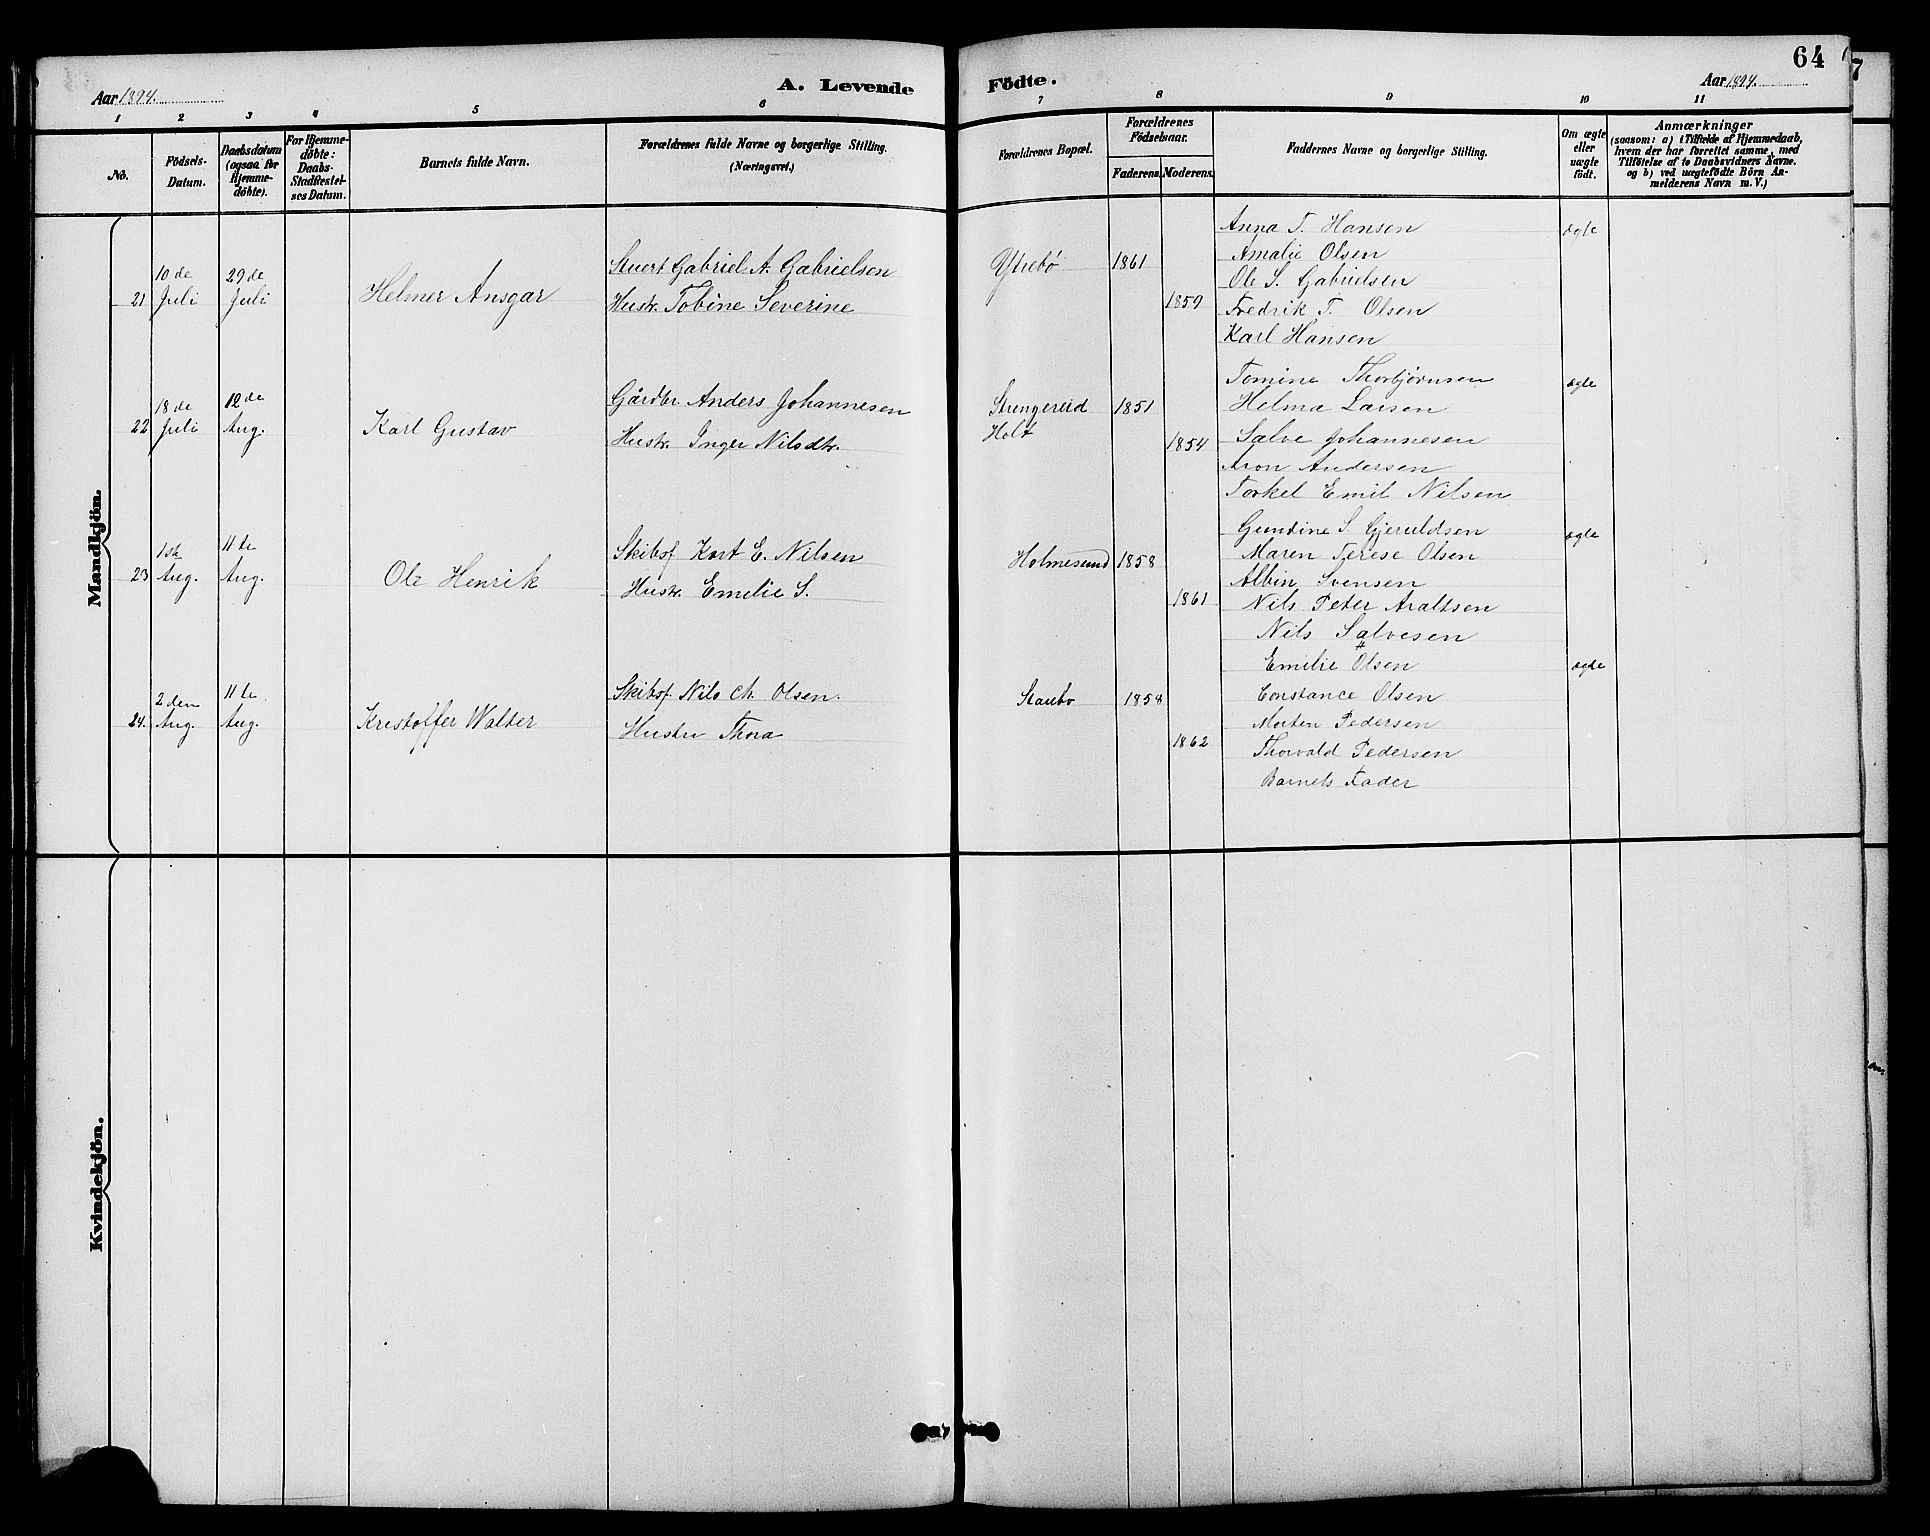 64
Aar 1894.
A. Levende Födte.
Aar 1894.
1 2 3 4 5 6 7 8 9 10 11
No.
Födsels-
Datum.
Daabsdatum
(ogsaa for
Hjemme-
døbte).
For Hjemme-
døbte:
Daabs-
Stadfæstel-
ses Datum.
Barnets fulde Navn.
Forældrenes fulde Navne og borgerlige Stilling.
(Næringsvei.)
Forældrenes Bopæl.
Forældrenes
Födselsaar.
Faderens. Moderens.
Faddernes Navne og borgerlige Stilling.
Om ægte
eller
uægte
födt.
Anmærkninger
(saasom: a) i Tilfælde af Hjemmedaab,
hvem der har forrettet samme, med
Tilföielse af to Daabsvidners Navne,
og b) ved uægtefödte Börn An-
melderens Navn m. V.)
Mandkjön.
21
10 de
Juli
29 de
Juli
Helmer Ansgar
Stuert Gabriel A. Gabrielsen
Hustr. Tobine Severine
Ytrebø
1861
1859
Anna T. Hansen
Amalie Olsen
Ole S. Gabrielsen
Fredrik T. Olsen
Karl Hansen
ægte
22
18 de
Juli
12 de
Aug.
Karl Gustav
Gårdbr Anders Johannesen
Hustr. Inger Nilsdtr.
Strengereid
Holt
1851
1854
Tomine Thorbjørnsen
Helma Larsen
Salve Johannesen
Aron Andersen
Torkel Emil Nilsen
ægte
23
1st
Aug.
11 te
Aug.
Ole Henrik
Skibsf Kort E. Nilsen
Hustr. Emelie S.
Holmesund
1858
1861
Gundine S Gjeruldsen
Maren Terese Olsen
Albin Svensen
Nils Peter Araltsen
Nils Salvesen
ægte
24.
2 den
Aug.
11 te
Aug.
Kristoffer Walter
Skibsf Nils Ch. Olsen.
Hustru Thora
Staubo
1858
1862
Emilie Olsen
Constance Olsen
Morten Pedersen
Thorvald Pedersen
Barnets Fader
ægte
Kvindekjön.